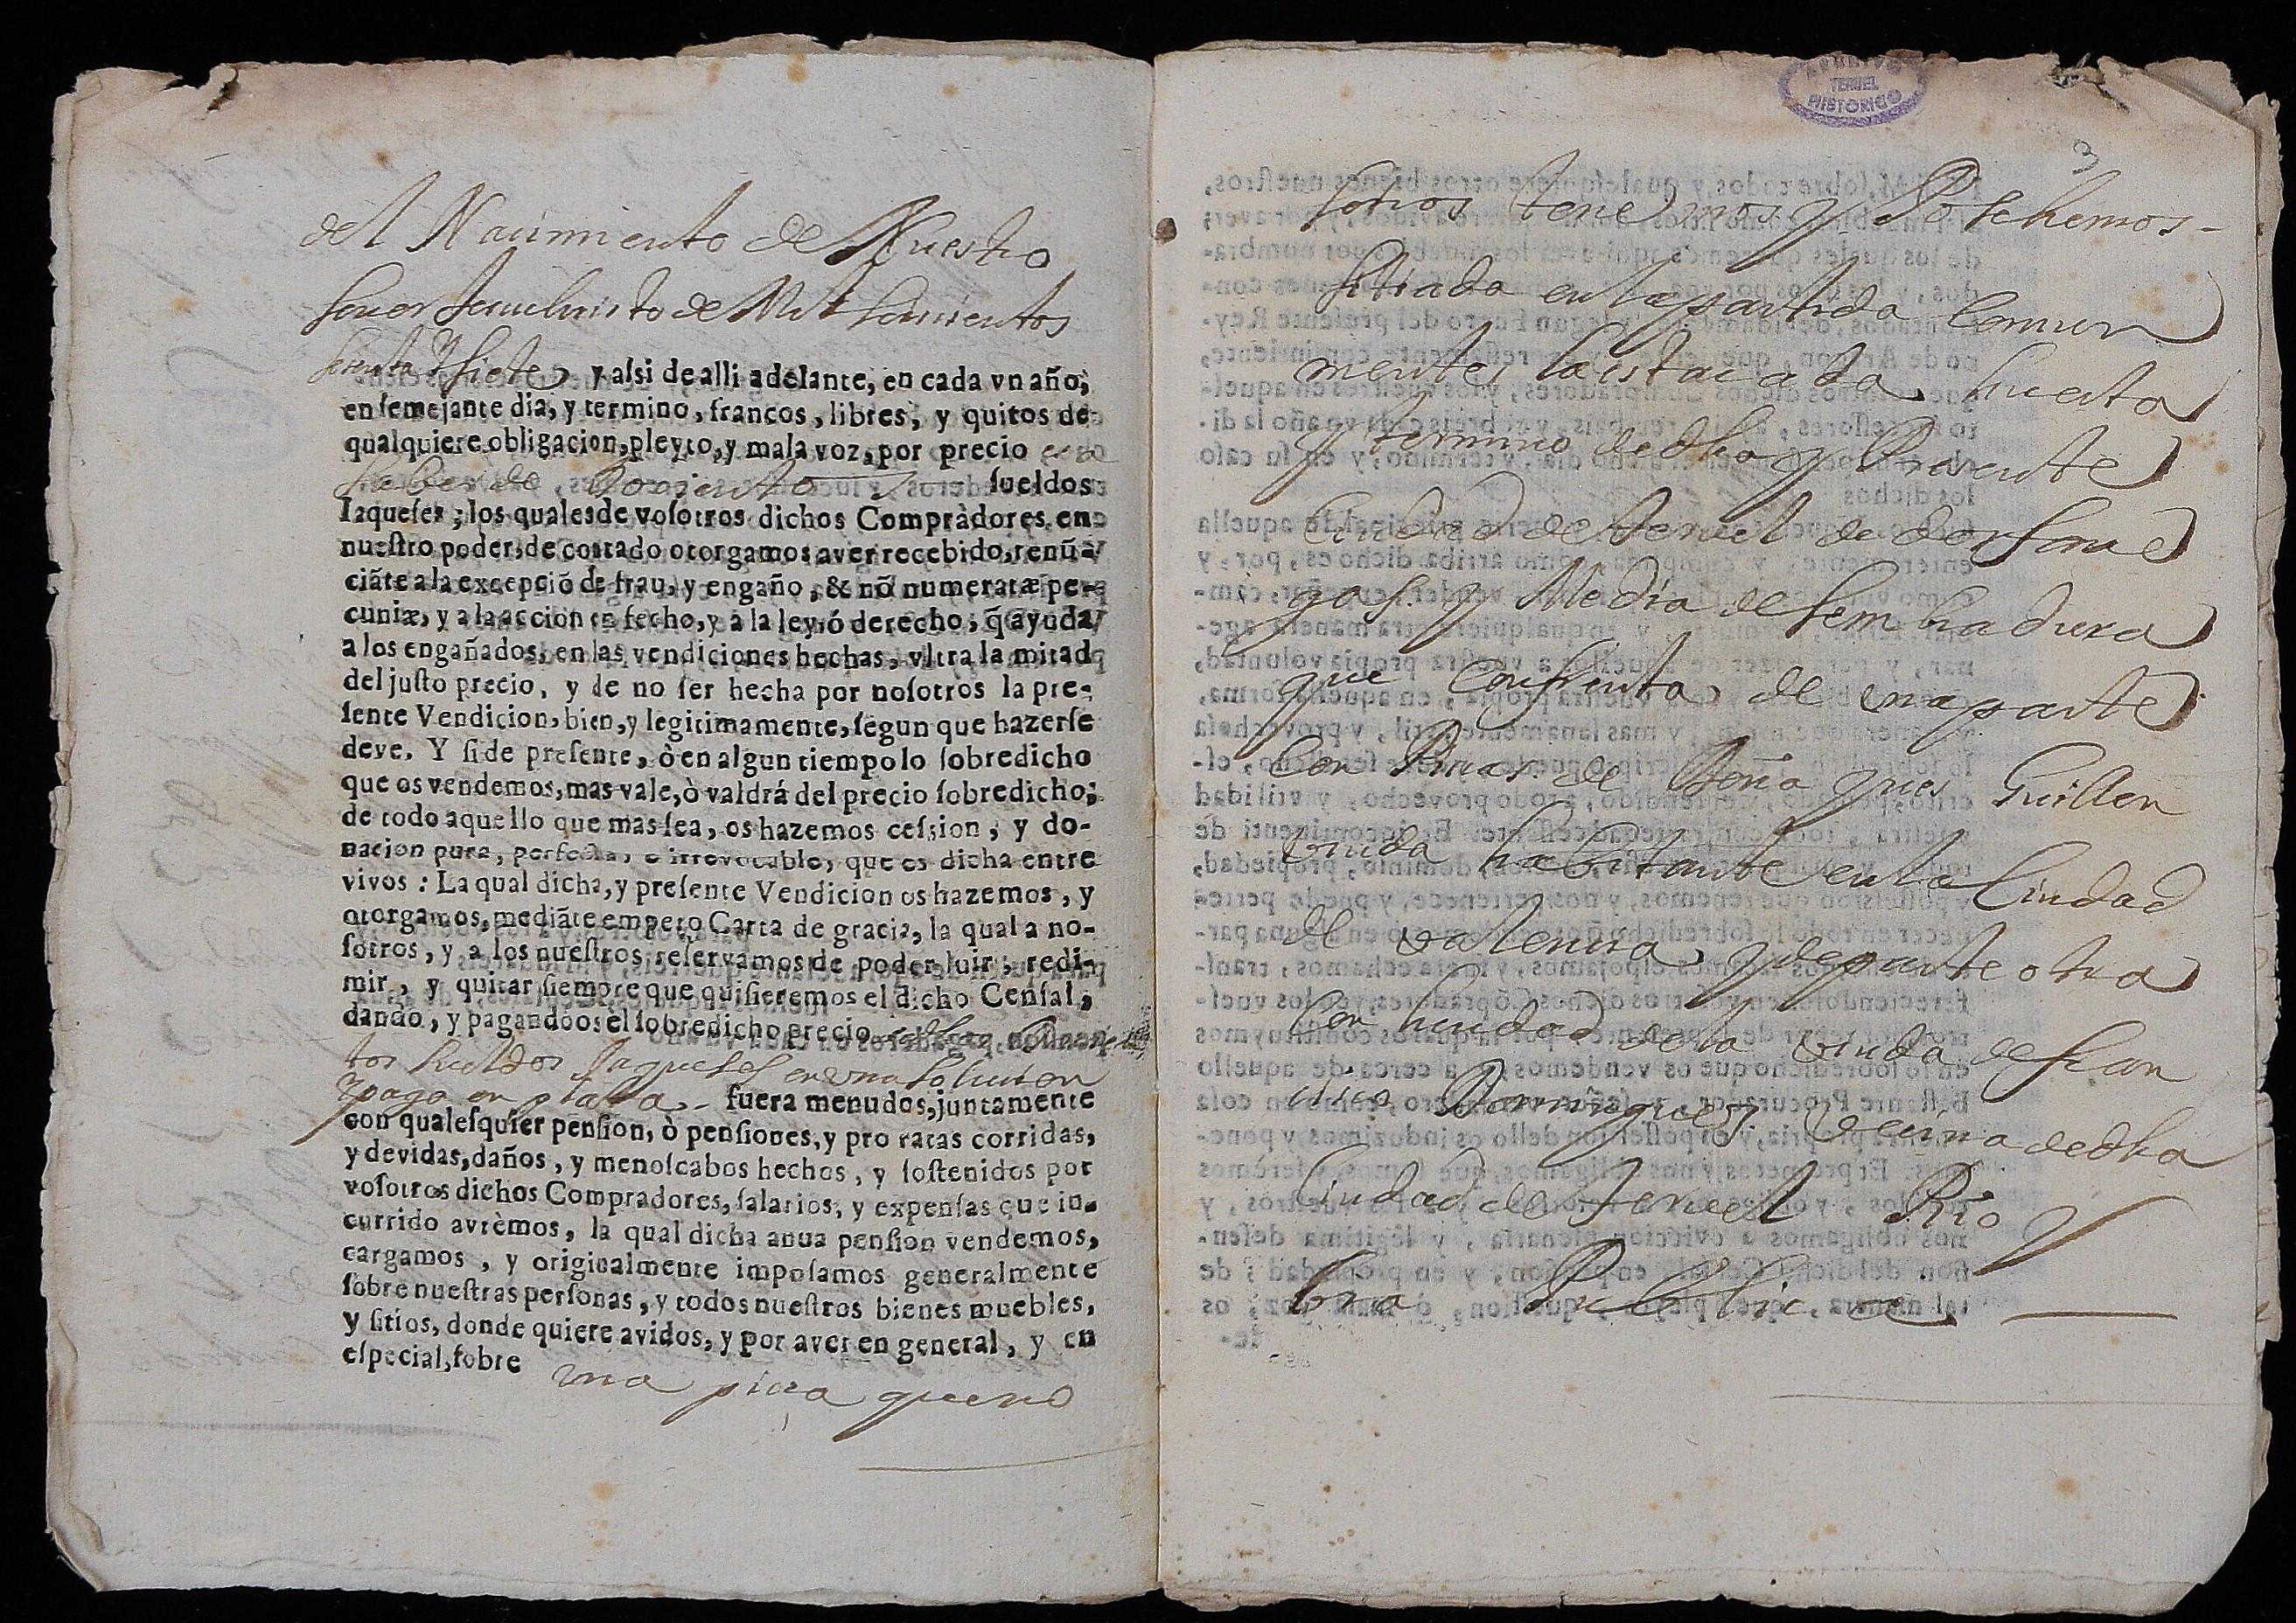 del Nacimiento de Nuestro
Senor Jesuchristo de Mil Seiscientos
Setenta y Siete, y aſsi de alli adelante, en cada vn año,
en ſemejante dia, y termino, francos, libres, y quitos de
qualquiere obligacion, pleyto, y mala voz, por precio
ſueldos
Iaqueſes; los quales de voſotros dichos Compràdores, en
nueſtro poder, de contado otorgamos aver recebido, renũ-
ciãte a la excepciõ de frau, y engaño, & nõ numeratæ pe-
cuniæ, y a la accion en fecho, y a la ley, ó derecho, q̃ ayuda
a los engañados, en las vendiciones hechas, vltra la mitad
del juſto precio, y de no ſer hecha por noſotros la pre-
ſente Vendicion, bien, y legitimamente, ſegun que hazerſe
deve. Y ſi de preſente, ò en algun tiempo lo ſobredicho
que os vendemos, mas vale, ò valdrá del precio ſobredicho;
de todo aquello que mas ſea, os hazemos ceſsion, y do-
nacion pura, perfecta, e irrevocable, que es dicha entre
vivos: La qual dicha, y preſente Vendicion os hazemos, y
otorgamos, mediãte empero Carta de gracia, la qual a no-
ſotros, y a los nueſtros reſervamos de poder luir, redi-
mir, y quitar ſiempre que quiſieremos el dicho Cenſal,
dando, y pagandoos el ſobredicho precio
tos sueldos Jaqueses en una solucion
y paga en plata - fuera menudos, juntamente
con qualeſquier penſion, ò penſiones, y pro ratas corridas,
y devidas, daños, y menoſcabos hechos, y ſoſtenidos por
voſotros dichos Compradores, ſalarios, y expenſas que in-
currido avrèmos, la qual dicha anua penſion vendemos,
cargamos, y originalmente impoſamos generalmente
ſobre nueſtras perſonas, y todos nueſtros bienes muebles,
y ſitios, donde quiere avidos, y por aver en general, y en
eſpecial, ſobre una pieza que no
3
ARCHIVO
TERUEL
HISTORICO
sotros tenemos y Posehemos -
sitiada en la partida comun
mente la estacada, huerta
y termino de dha y Presente
Ciudad de Teruel de dos fane
gas y Media de sembradura
que confrenta de una parte
con Pieza de Guillen
viuda habitante en la Ciudad
de valencia, y de parte otra
con heredad de la viuda de Fran
cisco Dominguez vecina de dha
Ciudad de Teruel Rio y
Via Publica